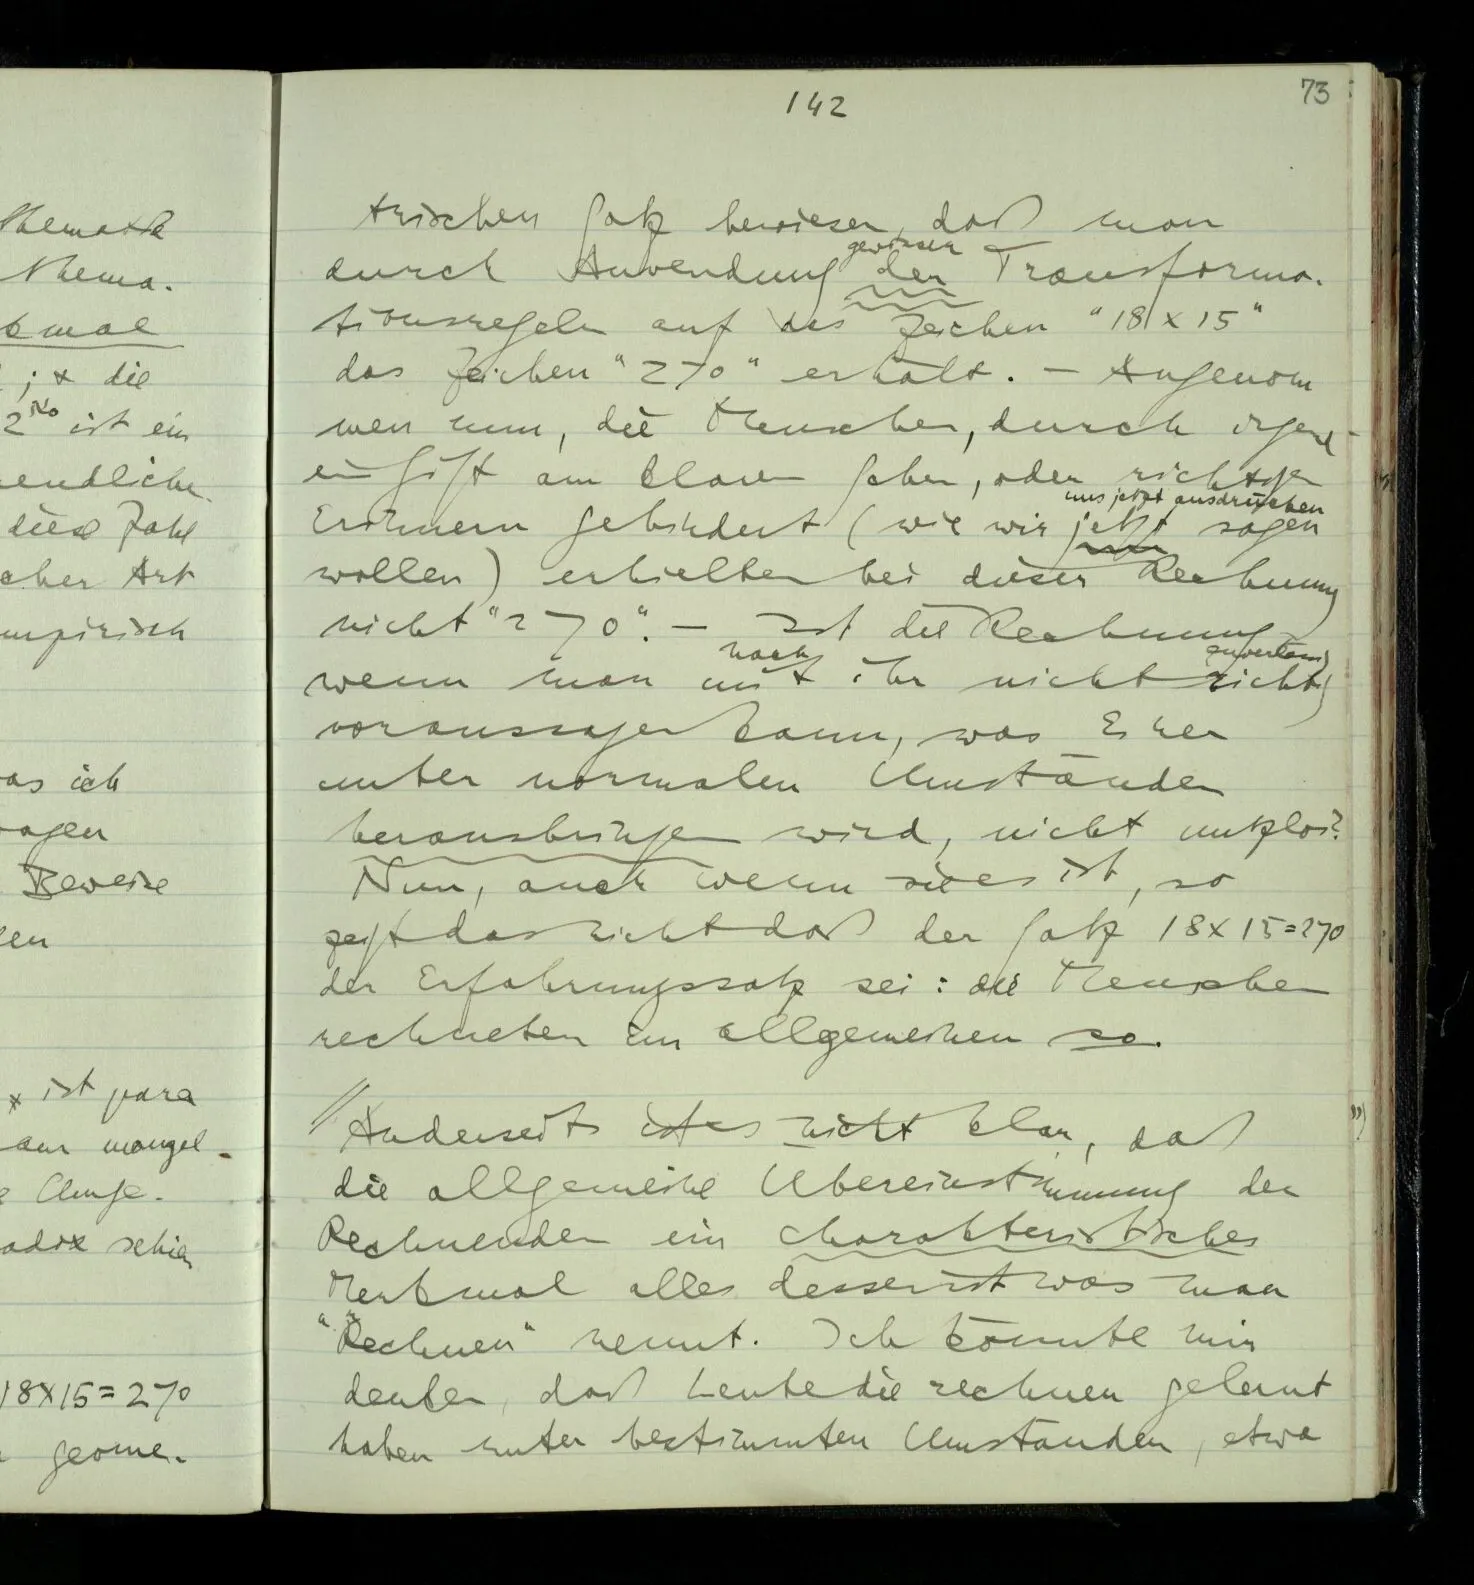 themati
thema-
xmal
; x die
2^ℵ0 ist ein
endliche
diese Zahl
cher Art
empirisch
as ich
sagen
Beweise
en
x ist para
am mangel-
e Umge-
adox schien
18x15=270
geome-
142
73
trischen Satz bewiesen, daß man
gewisser
durch Anwendung der Transforma-
tionsregeln auf das Zeichen "18 x 15"
das Zeichen "270" erhält. — Angenom
men nun, die Menschen, durch irgend-
ein Gift am klaren Sehen, oder richtigen
uns jetzt ausdrücken
Erinnern gehindert (wie wir jetzt sagen
wollen) erhielten bei dieser Rechnung
nicht "270". — Ist die Rechnung
nach zuverlässig
wenn man mit ihr nicht richtig
voraussagen kann, was Einer
unter normalen Umständen
herausbringen wird, nicht nutzlos?
Nun, auch wenn sie es ist, so
zeigt das nicht daß der Satz 18x15=270
der Erfahrungssatz sei: die Menschen
rechneten im allgemeinen so.
// Anderseits ist es nicht klar, daß
die allgemeine Übereinstimmung der
Rechnenden ein charakteristisches
Merkmal alles dessen ist was man
"Rechnen" nennt. Ich könnte mir
denken, daß Leute die rechnen gelernt
haben unter bestimmten Umständen, etwa